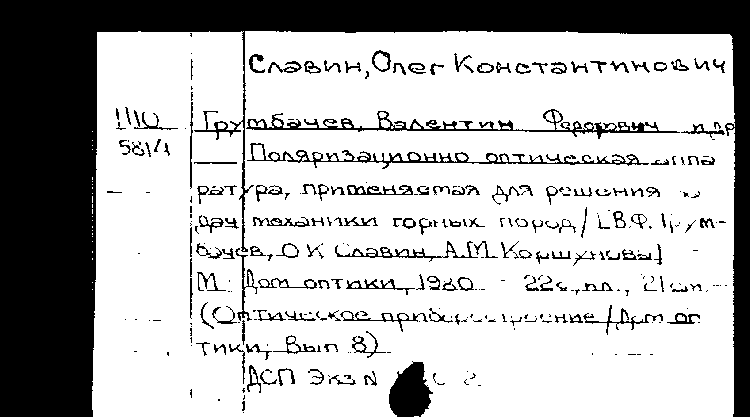 Славин, Олег Константинович
1110 Грумбачев, Валентин Федорович и др
581/1 Поляризационно оптическая аппа
ратура, применяемая для решения за
дач механики горных пород / [В.Ф. Грум-
бачев, О К Славин, А.М. Коршунов]
М. Дом оптики, 1980 - 22с, ил., 21см.-
(Оптическое приборостроение / Дом оп
тики, Вып 8)
ДСП Экз N